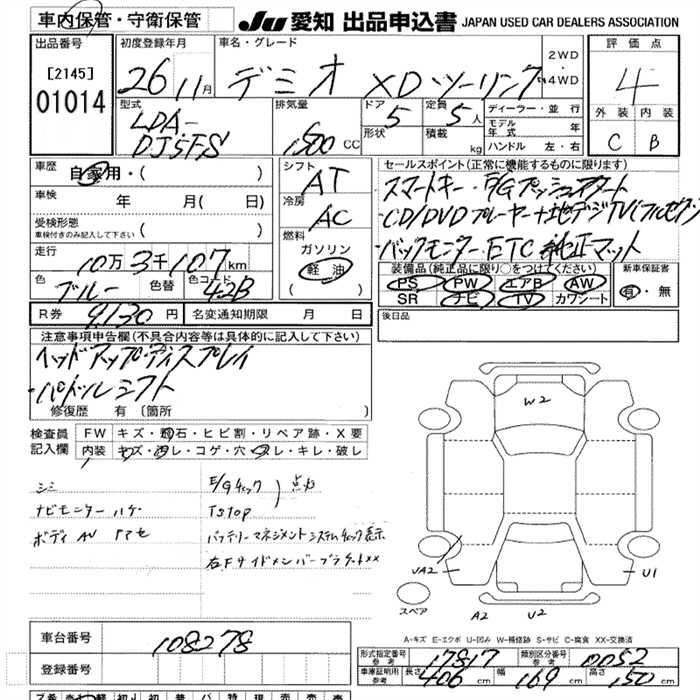 車内保管・守衛保管 JU 愛知 出品申込書 JAPAN USED CAR DEALERS ASSOCIATION
出品番号 初度登録年月 車名・グレード 2WD・4WD 評価点
[2145]
01014
26 11月 デミオ XD・ツーリング 4
型式 排気量 ドア 定員 ディーラー・並行 外装 内装
LDA-
DJ5FS 1500 CC 5 5人 モデル年式 年 C B
形状 積載 kg ハンドル 左・右
車歴 自家用・( ) シフト AT セールスポイント(正常に機能するものに限ります)
車検 年 月( 日) 冷房 AC スマートキー・E/Gプッシュスタート
受検形態 ・CD/DVDプレーヤー+地デジTV(フルセグ)
車検付きのみ記入して下さい ( ) 燃料 ・バックモニター ETC 純正マット
走行 ガソリン 装備品(純正品に限り○をつけてください) 新車保証書
10万3千107km 軽油 PS PW エアB AW 有・無
色 ブルー 色替 色コード 42B ( ) SR ナビ TV カワシート
R券 9,130円 名変通知期限 月 日 後日品
注意事項申告欄(不具合内容等は具体的に記入して下さい)
ヘッドアップディスプレイ
・パドルシフト
修復歴 有 〔箇所 〕 W2
検査員 FW キズ・飛石・ヒビ割・リペア跡・X要
記入欄 内装 キズ・汚レ・コゲ・穴・スレ・キレ・破レ
シミ E/Gチェック 点灯
ナビモニター ハゲ TSTOP
ボディ バッテリーマネジメントシステムチェック表示
右FサイドメンバーブラケットXX
VA2 U1
スペア A2 U2
A-キズ E-エクボ U-凹み W-補修跡 S-サビ C-腐食 XX-交換済
車台番号 108278
型式指定番号 参考 17817 類別区分番号 参考 0052
登録番号 車庫証明用 参考 長さ 406cm 幅 169cm 高さ 150cm